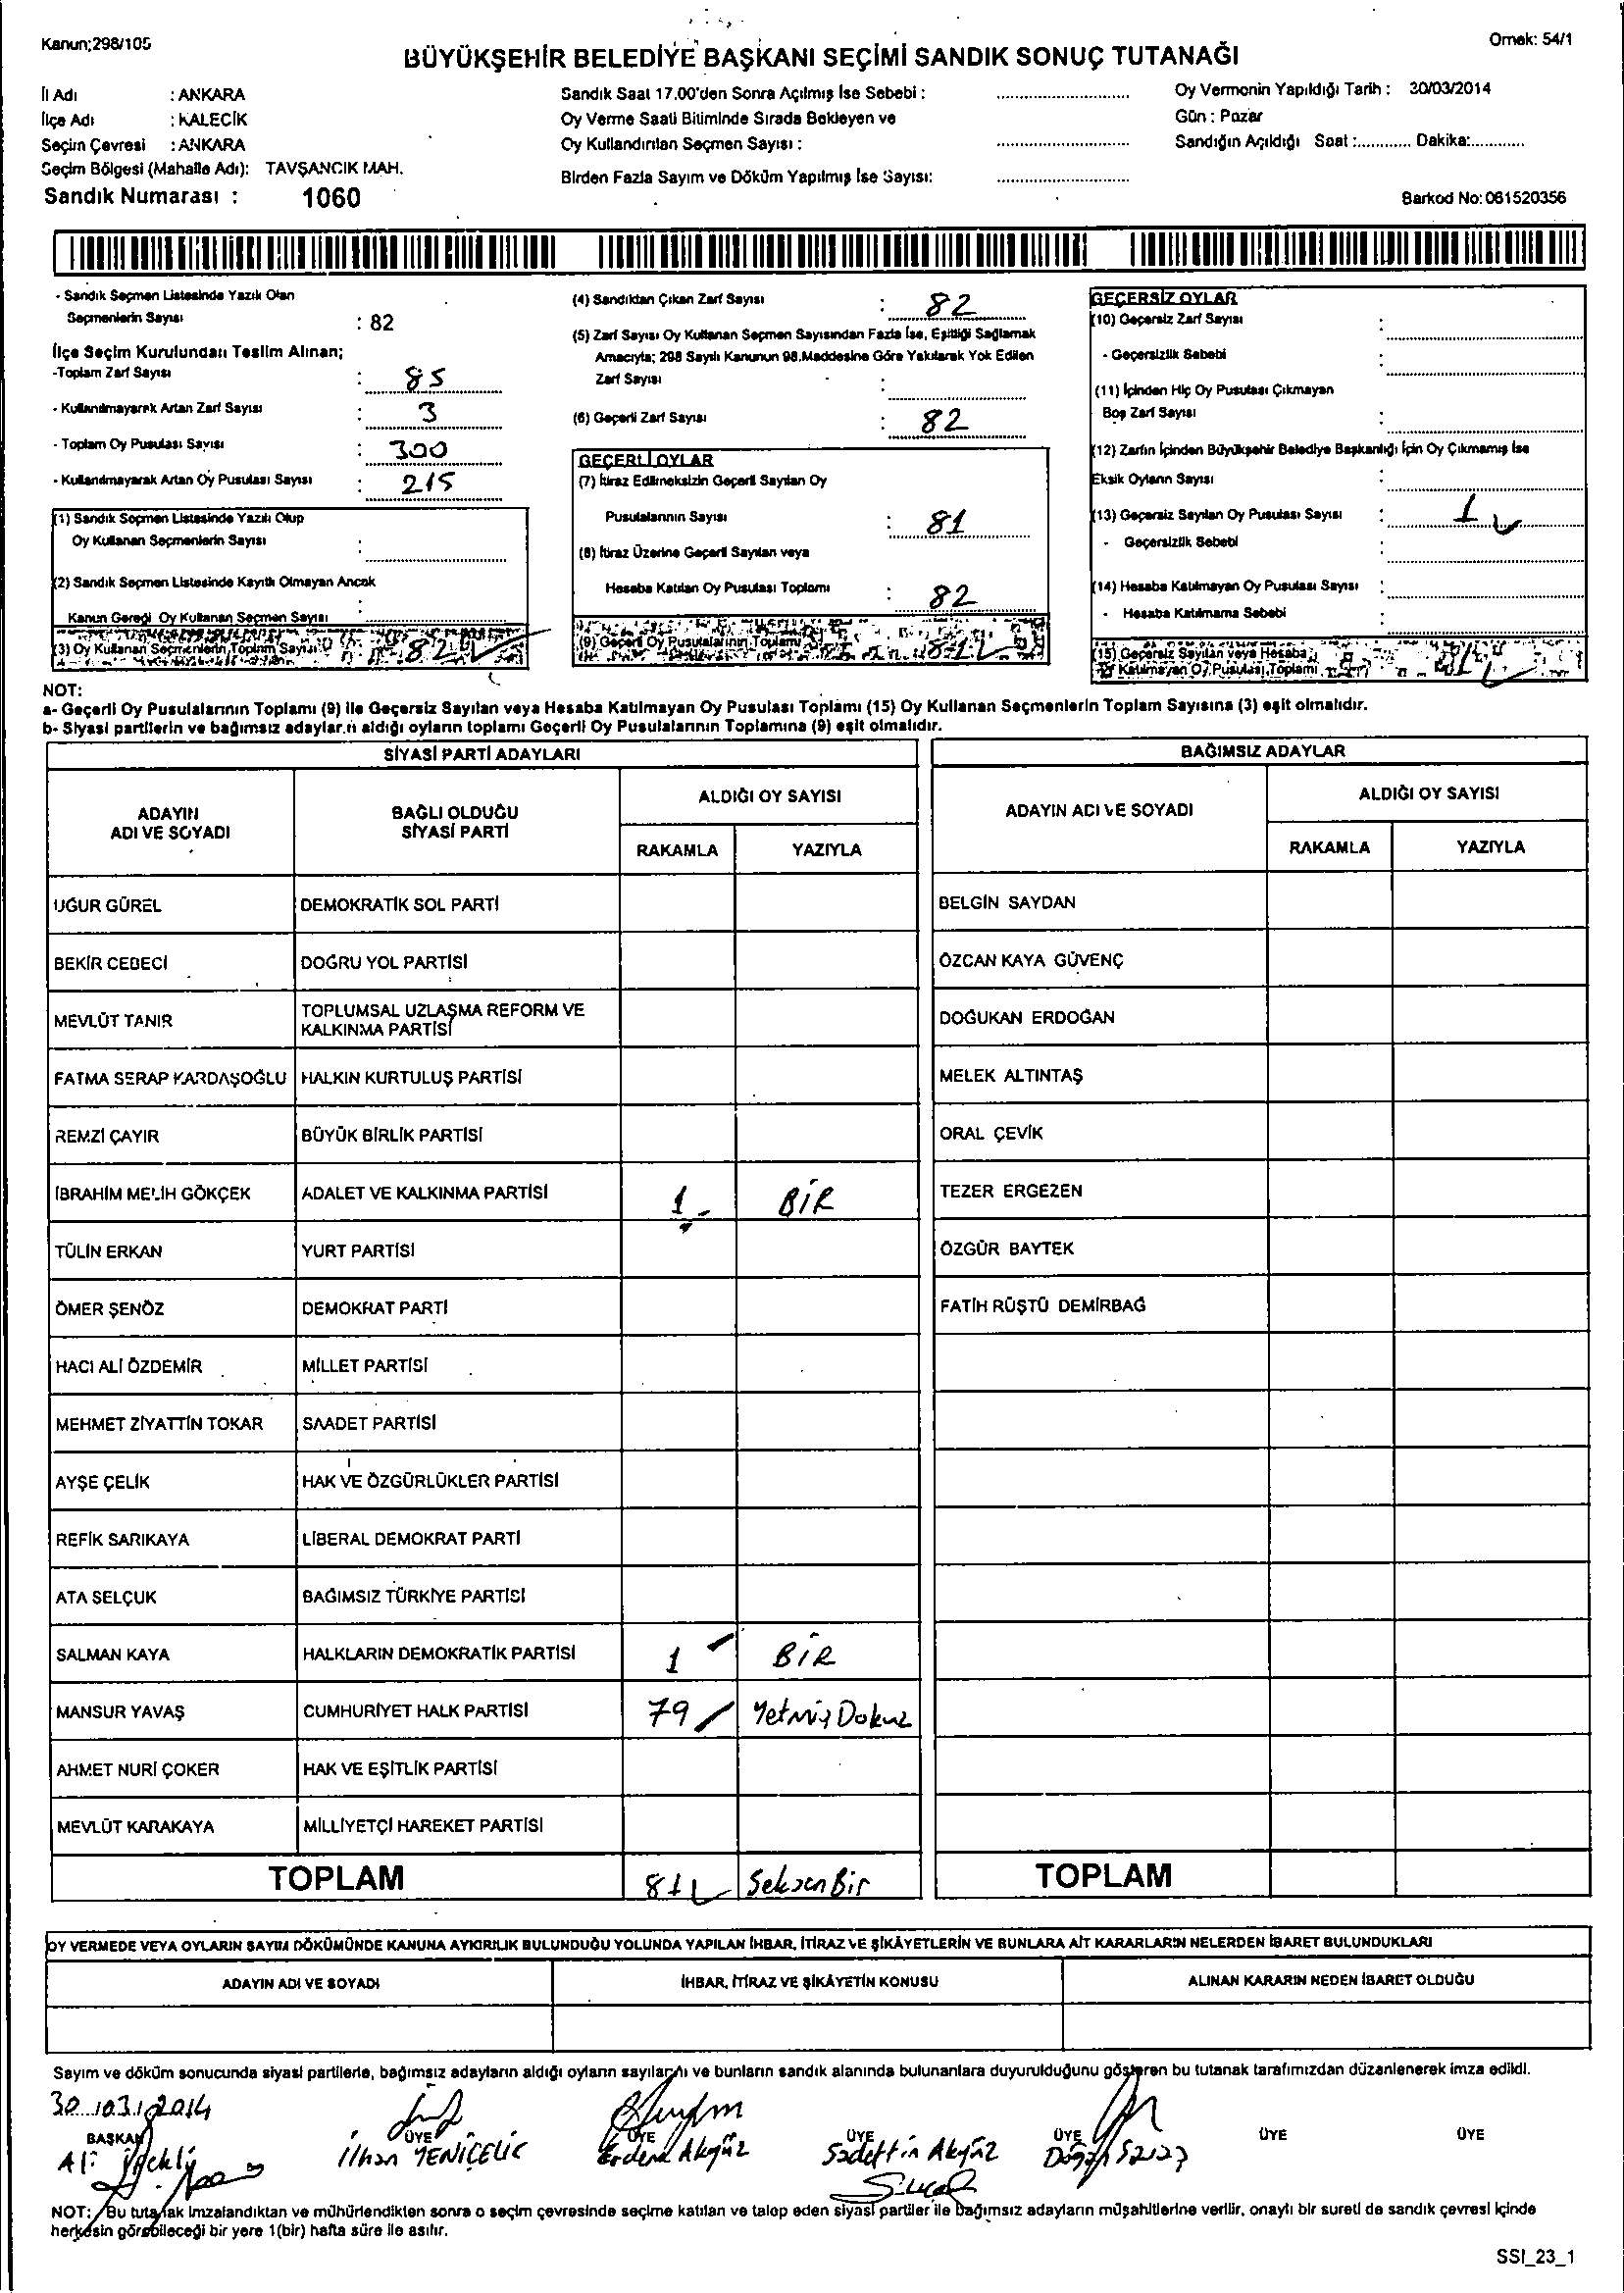 Kanun;298/105
Örnek: 54/1
BÜYÜKŞEHİR BELEDİYE BAŞKANI SEÇİMİ SANDIK SONUÇ TUTANAĞI
İl Adı : ANKARA
İlçe Adı : KALECİK
Seçim Çevresi : ANKARA
Seçim Bölgesi (Mahalle Adı): TAVŞANCIK MAH.
Sandık Numarası : 1060
Sandık Saat 17.00'den Sonra Açılmış İse Sebebi :
Oy Verme Saati Bitiminde Sırada Bekleyen ve
Oy Kullandırılan Seçmen Sayısı :
Birden Fazla Sayım ve Döküm Yapılmış İse Sayısı:
Oy Vermenin Yapıldığı Tarih : 30/03/2014
Gün : Pazar
Sandığın Açıldığı Saat :............ Dakika:............
Barkod No: 061520356
- Sandık Seçmen Listesinde Yazılı Olan
Seçmenlerin Sayısı : 82
İlçe Seçim Kurulundan Teslim Alınan;
-Toplam Zarf Sayısı : 85
- Kullanılmayarak Artan Zarf Sayısı : 3
- Toplam Oy Pusulası Sayısı : 300
- Kullanılmayarak Artan Oy Pusulası Sayısı : 215
(1) Sandık Seçmen Listesinde Yazılı Olup
Oy Kullanan Seçmenlerin Sayısı :
(2) Sandık Seçmen Listesinde Kayıtlı Olmayan Ancak
Kanun Gereği Oy Kullanan Seçmen Sayısı :
(3) Oy Kullanan Seçmenlerin Toplam Sayısı 82
(4) Sandıktan Çıkan Zarf Sayısı : 82
(5) Zarf Sayısı Oy Kullanan Seçmen Sayısından Fazla İse, Eşitliği Sağlamak
Amacıyla; 298 Sayılı Kanunun 98.Maddesine Göre Yakılarak Yok Edilen
Zarf Sayısı :
(6) Geçerli Zarf Sayısı : 82
GEÇERLİ OYLAR
(7) İtiraz Edilmeksizin Geçerli Sayılan Oy
Pusulalarının Sayısı : 81
(8) İtiraz Üzerine Geçerli Sayılan veya
Hesaba Katılan Oy Pusulası Toplamı : 82
(9) Geçerli Oy Pusulalarının Toplamı
GEÇERSİZ OYLAR
(10) Geçersiz Zarf Sayısı :
- Geçersizlik Sebebi :
(11) İçinden Hiç Oy Pusulası Çıkmayan
Boş Zarf Sayısı :
(12) Zarfın İçinden Büyükşehir Belediye Başkanlığı İçin Oy Çıkmamış İse
Eksik Oyların Sayısı :
(13) Geçersiz Sayılan Oy Pusulası Sayısı : 1
- Geçersizlik Sebebi :
(14) Hesaba Katılmayan Oy Pusulası Sayısı :
- Hesaba Katılmama Sebebi :
(15) Geçersiz Sayılan veya Hesaba
Katılmayan Oy Pusulası Toplamı
NOT:
a- Geçerli Oy Pusulalarının Toplamı (9) ile Geçersiz Sayılan veya Hesaba Katılmayan Oy Pusulası Toplamı (15) Oy Kullanan Seçmenlerin Toplam Sayısına (3) eşit olmalıdır.
b- Siyasi partilerin ve bağımsız adayların aldığı oyların toplamı Geçerli Oy Pusulalarının Toplamına (9) eşit olmalıdır.
SİYASİ PARTİ ADAYLARI
ADAYIN ADI VE SOYADI
BAĞLI OLDUĞU SİYASİ PARTİ
ALDIĞI OY SAYISI
RAKAMLA YAZIYLA
UĞUR GÜREL DEMOKRATİK SOL PARTİ
BEKİR CEBECİ DOĞRU YOL PARTİSİ
MEVLÜT TANIR TOPLUMSAL UZLAŞMA REFORM VE KALKINMA PARTİSİ
FATMA SERAP KARDAŞOĞLU HALKIN KURTULUŞ PARTİSİ
REMZİ ÇAYIR BÜYÜK BİRLİK PARTİSİ
İBRAHİM MELİH GÖKÇEK ADALET VE KALKINMA PARTİSİ 1 BİR
TÜLİN ERKAN YURT PARTİSİ
ÖMER ŞENÖZ DEMOKRAT PARTİ
HACI ALİ ÖZDEMİR MİLLET PARTİSİ
MEHMET ZİYATTİN TOKAR SAADET PARTİSİ
AYŞE ÇELİK HAK VE ÖZGÜRLÜKLER PARTİSİ
REFİK SARIKAYA LİBERAL DEMOKRAT PARTİ
ATA SELÇUK BAĞIMSIZ TÜRKİYE PARTİSİ
SALMAN KAYA HALKLARIN DEMOKRATİK PARTİSİ 1 BİR
MANSUR YAVAŞ CUMHURİYET HALK PARTİSİ 79 Yetmiş Dokuz
AHMET NURİ ÇOKER HAK VE EŞİTLİK PARTİSİ
MEVLÜT KARAKAYA MİLLİYETÇİ HAREKET PARTİSİ
TOPLAM 81 Seksen Bir
BAĞIMSIZ ADAYLAR
ADAYIN ADI VE SOYADI
ALDIĞI OY SAYISI
RAKAMLA YAZIYLA
BELGİN SAYDAN
ÖZCAN KAYA GÜVENÇ
DOĞUKAN ERDOĞAN
MELEK ALTINTAŞ
ORAL ÇEVİK
TEZER ERGEZEN
ÖZGÜR BAYTEK
FATİH RÜŞTÜ DEMİRBAĞ
TOPLAM
OY VERMEDE VEYA OYLARIN SAYIM DÖKÜMÜNDE KANUNA AYKIRILIK BULUNDUĞU YOLUNDA YAPILAN İHBAR, İTİRAZ VE ŞİKÂYETLERİN VE BUNLARA AİT KARARLARIN NELERDEN İBARET BULUNDUKLARI
ADAYIN ADI VE SOYADI
İHBAR, İTİRAZ VE ŞİKÂYETİN KONUSU
ALINAN KARARIN NEDEN İBARET OLDUĞU
Sayım ve döküm sonucunda siyasi partilerle, bağımsız adayların aldığı oyların sayılarını ve bunların sandık alanında bulunanlara duyurulduğunu gösteren bu tutanak tarafımızdan düzenlenerek imza edildi.
30/03/2014
BAŞKAN ÜYE ÜYE ÜYE ÜYE ÜYE ÜYE
Ali İlhan YENİÇELİK Erdem Akgöz Sadettin Akgöz Doğan
NOT: Bu tutanak imzalandıktan ve mühürlendikten sonra o seçim çevresinde seçime katılan ve talep eden siyasi partiler ile bağımsız adayların müşahitlerine verilir, onaylı bir sureti de sandık çevresi içinde
herkesin görebileceği bir yere 1(bir) hafta süre ile asılır.
SSI_23_1